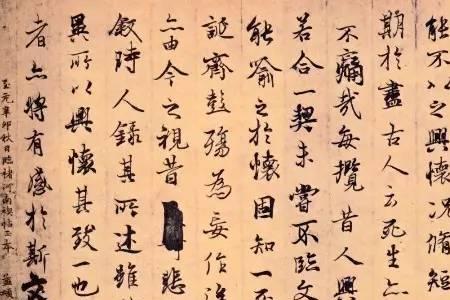 能不以之興懷况脩短
期於盡古人云死生
不痛哉每攬昔人興
若合一契未嘗不臨文
能喻之於懷固知一
誕齊彭殤為妄作
亦由今之視昔悲
叙時人錄其所述雖
異所以興懷其致一也
者亦將有感於斯文
至元辛卯秋日臨褚河南禊帖 孟頫